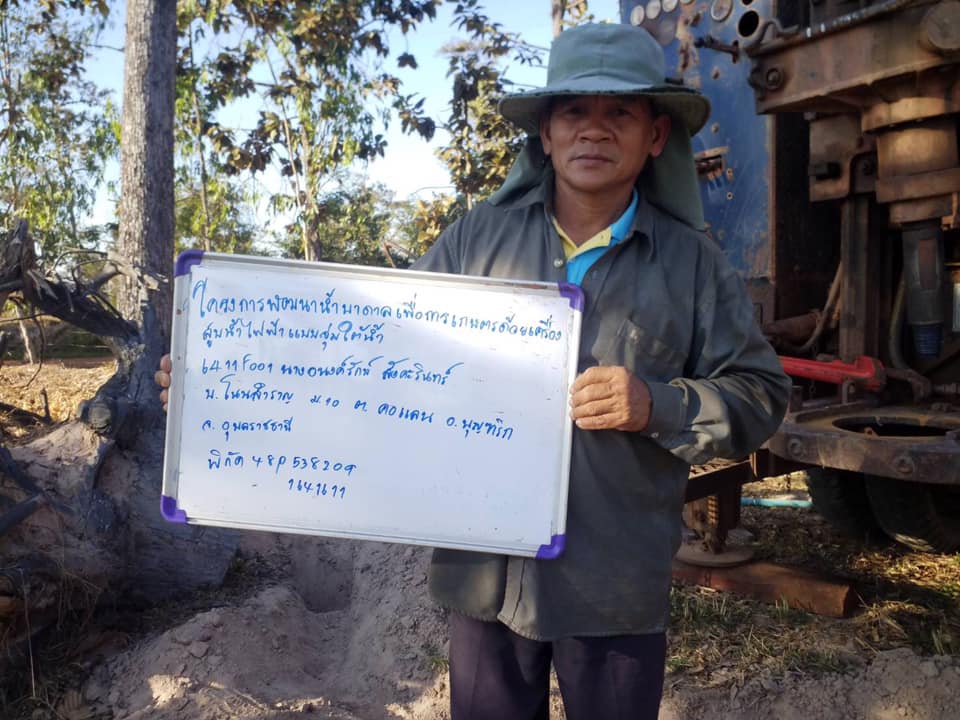 โครงการพัฒนาน้ำบาดาลเพื่อการเกษตรด้วยเครื่อง
สูบน้ำไฟฟ้าแบบจุ่มใต้น้ำ
นางอนงค์รักษ์ สังคะรินทร์
บ.โนนสำราญ ม.10 ต.คอแลน อ.บุณฑริก
จ.อุบลราชธานี
พิกัด 48P 538209
1641611